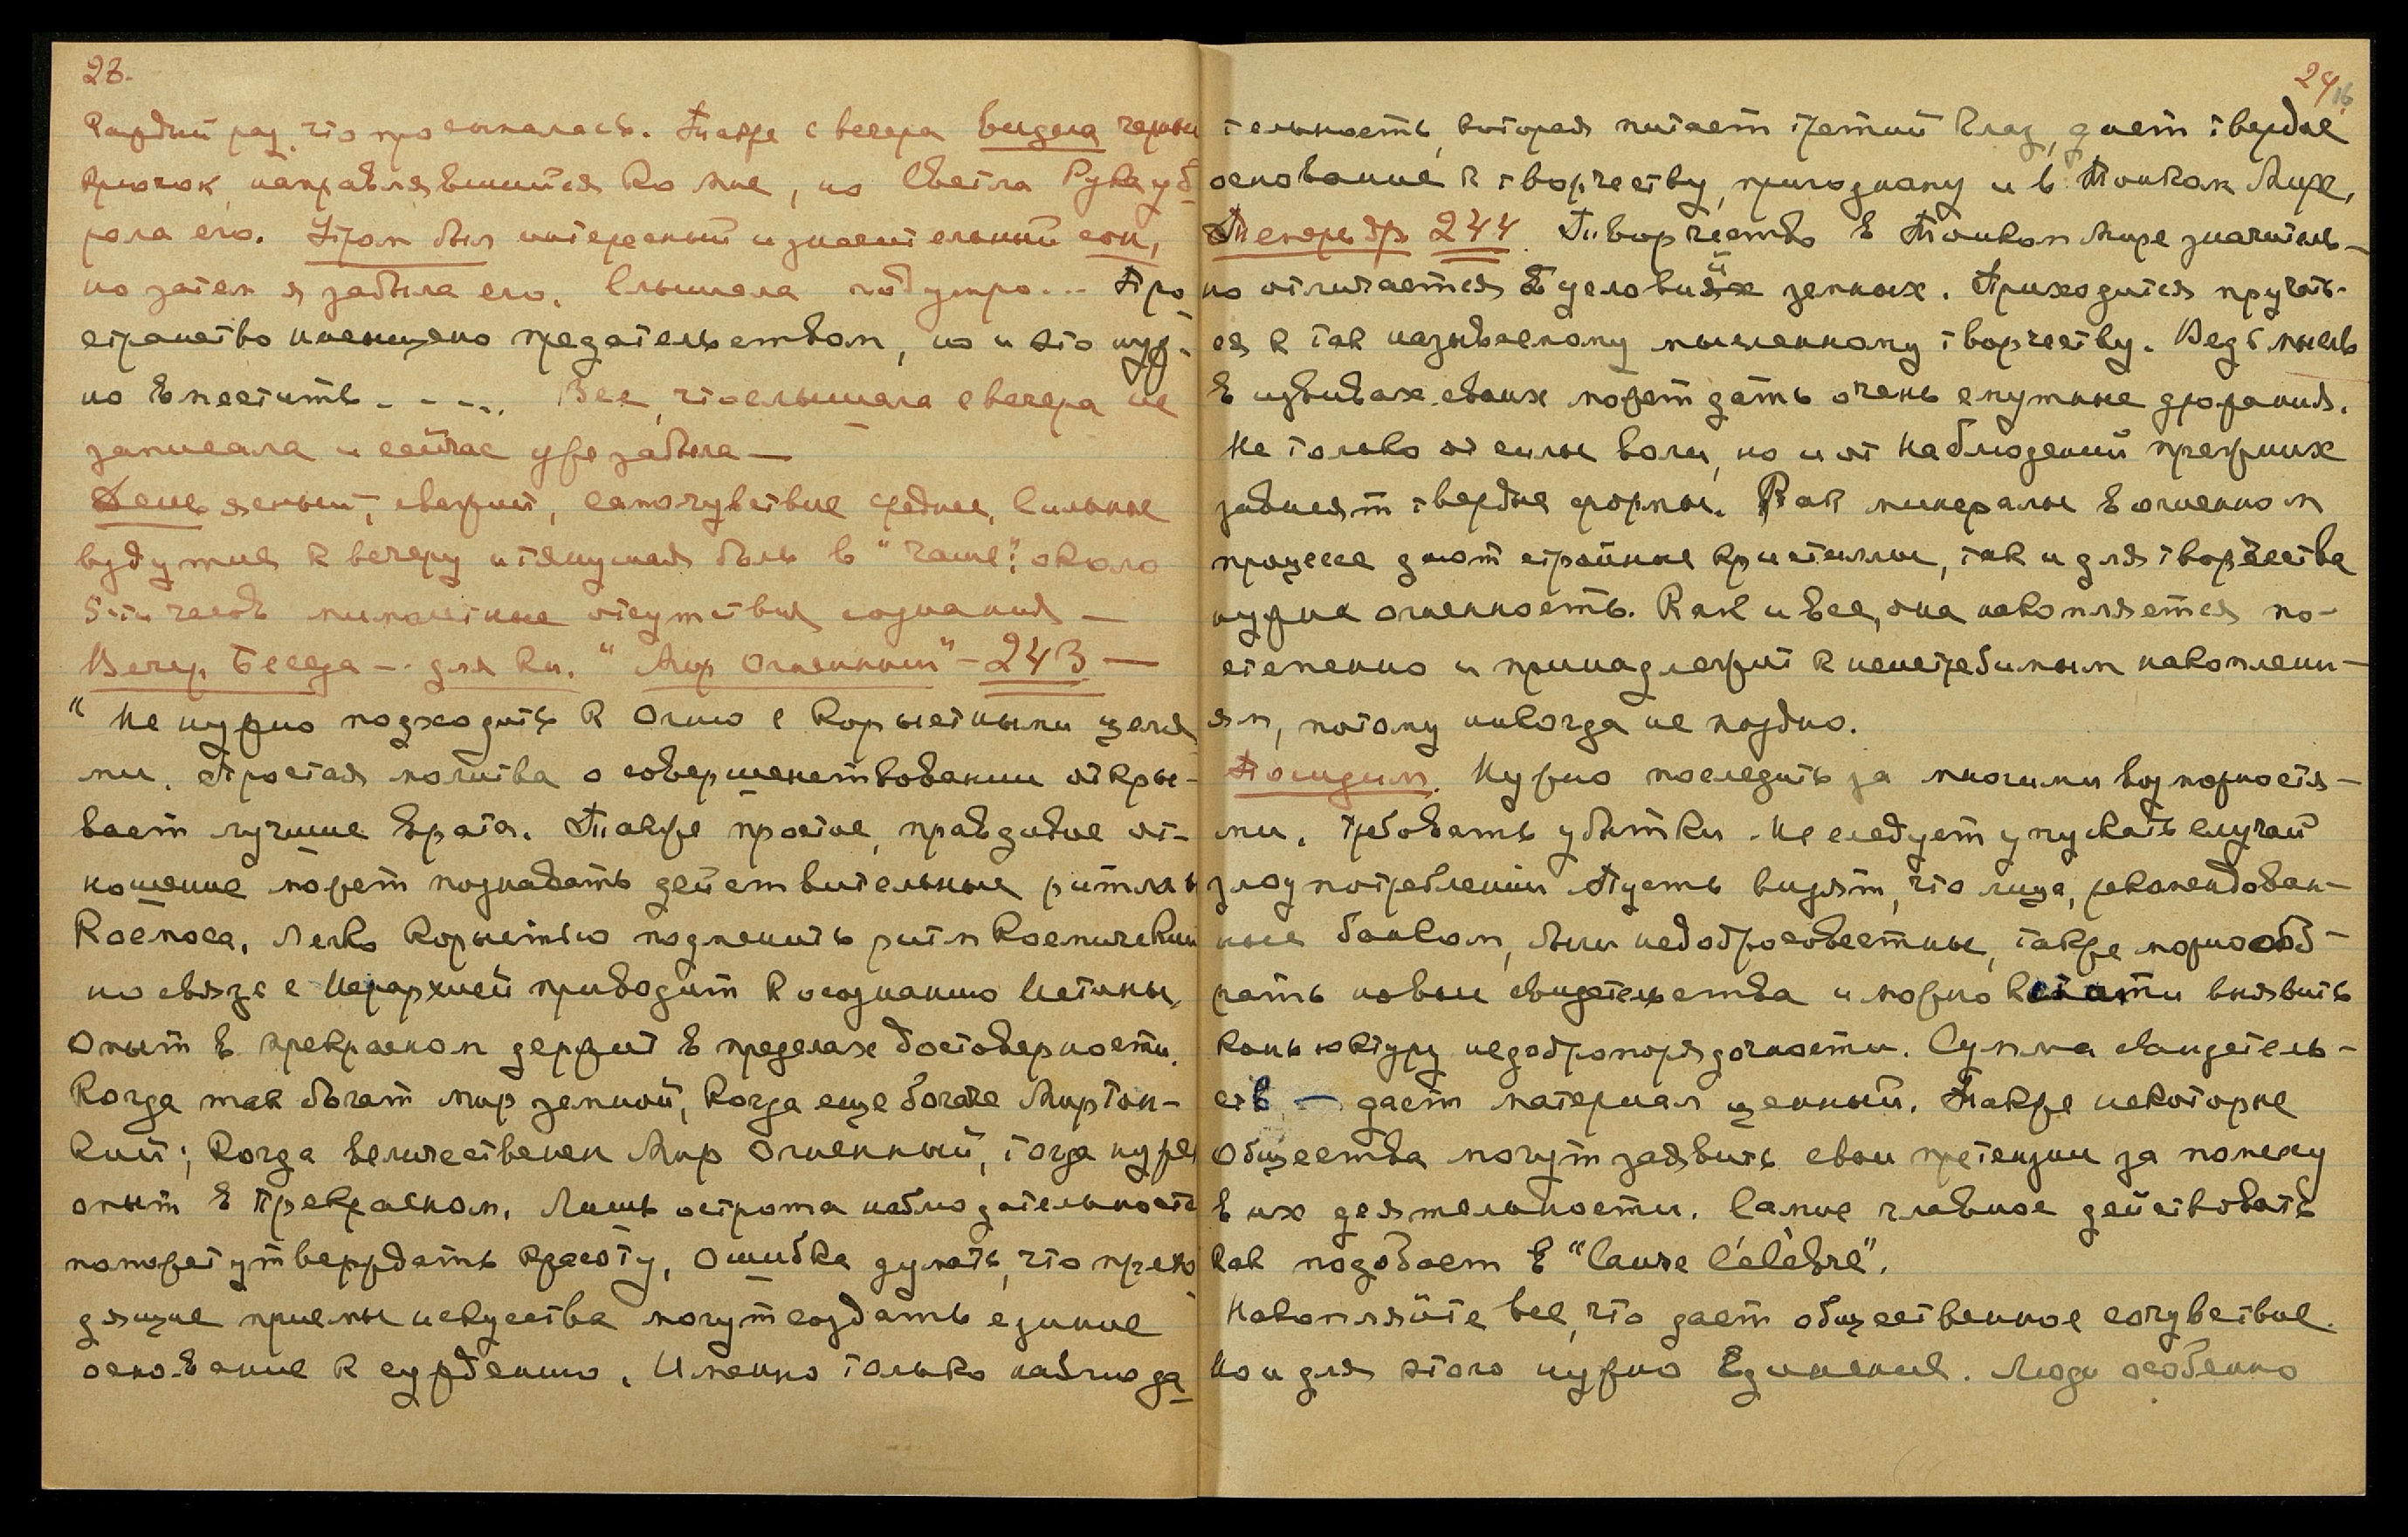 23.
Каждый раз, что просыпалась. Также с вечера видела черный
крючок, направлявшийся ко мне, но Светлая Рука уб-
рала его. Утром был интересный и значительный сон,
но затем я забыла его. Слышала под утро... Про-
странство насыщено предательством, но и это нуж-
но вместить - - - -. Все, что слышала с вечера не
записала и сейчас уже забыла —
День ясный, свежий, самочувствие среднее, Сильные
вздутия к вечеру и тянущая боль в "чаше"; около
5-ти часов минолетные отсутствия сознания —
Вечер Беседа — для кн. "Мир Огненный" — 243 —
"Не нужно подходить к Огню с корыстными целя-
ми. Простая молитва о совершенствовании откры-
вает лучшие врата. Также простое, правдивое от-
ношение может познавать действительные ритмы
Космоса. Легко корыстью подменить ритм космический
но связь с Иерархией приводит к осознанию Истины.
Опыт в прекрасном держит в пределах достоверности.
Когда так богат мир земной, когда еще богаче Мир Тон-
кий; Когда величественен Мир Огненный, тогда нужен
опыт в Прекрасном. Лишь острота наблюдательности
поможет утверждать красоту. Ошибка думать, что прехо-
дящие приемы искусства могут создать единое
основание к суждению. Именно только наблюда-
24
16
тельность, которая питает третий глаз, дает твердое
основание к творчеству, пригодному и в Тонком Мире.
Теперь др. 244. Творчество в Тонком Мире значитель-
но отличается от условий земных. Приходится приучать-
ся к так называемому мысленному творчеству. Ведь мысль
в извивах своих может дать очень смутные дрожания.
Не только от силы воли, но и от наблюдений прежних
зависят твердые формы. Как минералы в огненном
процессе дают стройные кристаллы, так и для творчества
нужна огненность. Как и все, она накопляется по-
степенно и принадлежит к неистребимым накоплени-
ям, потому никогда не поздно.
Пошидим. Нужно последить за многими возможностя-
ми. Требовать убытки. Не следует упускать случай
злоупотреблений Пусть видят, что лица, рекомендован-
ные банком, были недобросовестные, также можно соб-
рать новые свидетельства и можно кстати выявить
коньюктуру недобропорядочности. Сумма свидетель-
ств — дает материал ценный. Также некоторые
Общества могут заявить свои претензии за помеху
в их деятельности. Самое главное действовать
как подобает в "Cause Célèbre".
Накопляйте все, что дает общественное сочувствие.
Но и для этого нужно Единение. Люди особенно